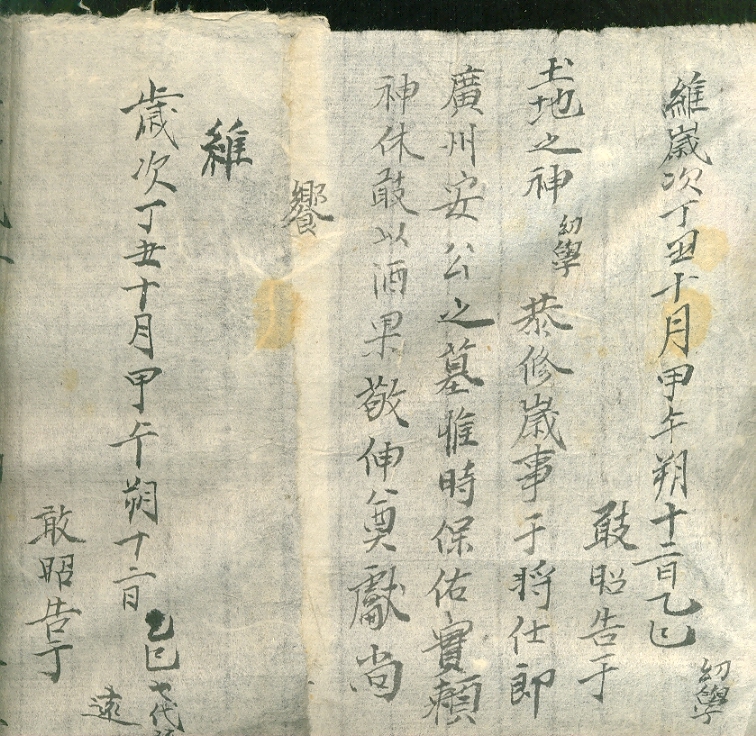 維歲次丁丑十月甲午朔十二日乙巳幼學
敢昭告于
土地之神幼學
恭修歲事于將仕郎
廣州安公之墓惟時保佑實賴
神休敢以酒果敬伸奠獻尚
饗
維
歲次丁丑十月甲午朔十二日乙巳七代
遠
敢昭告于